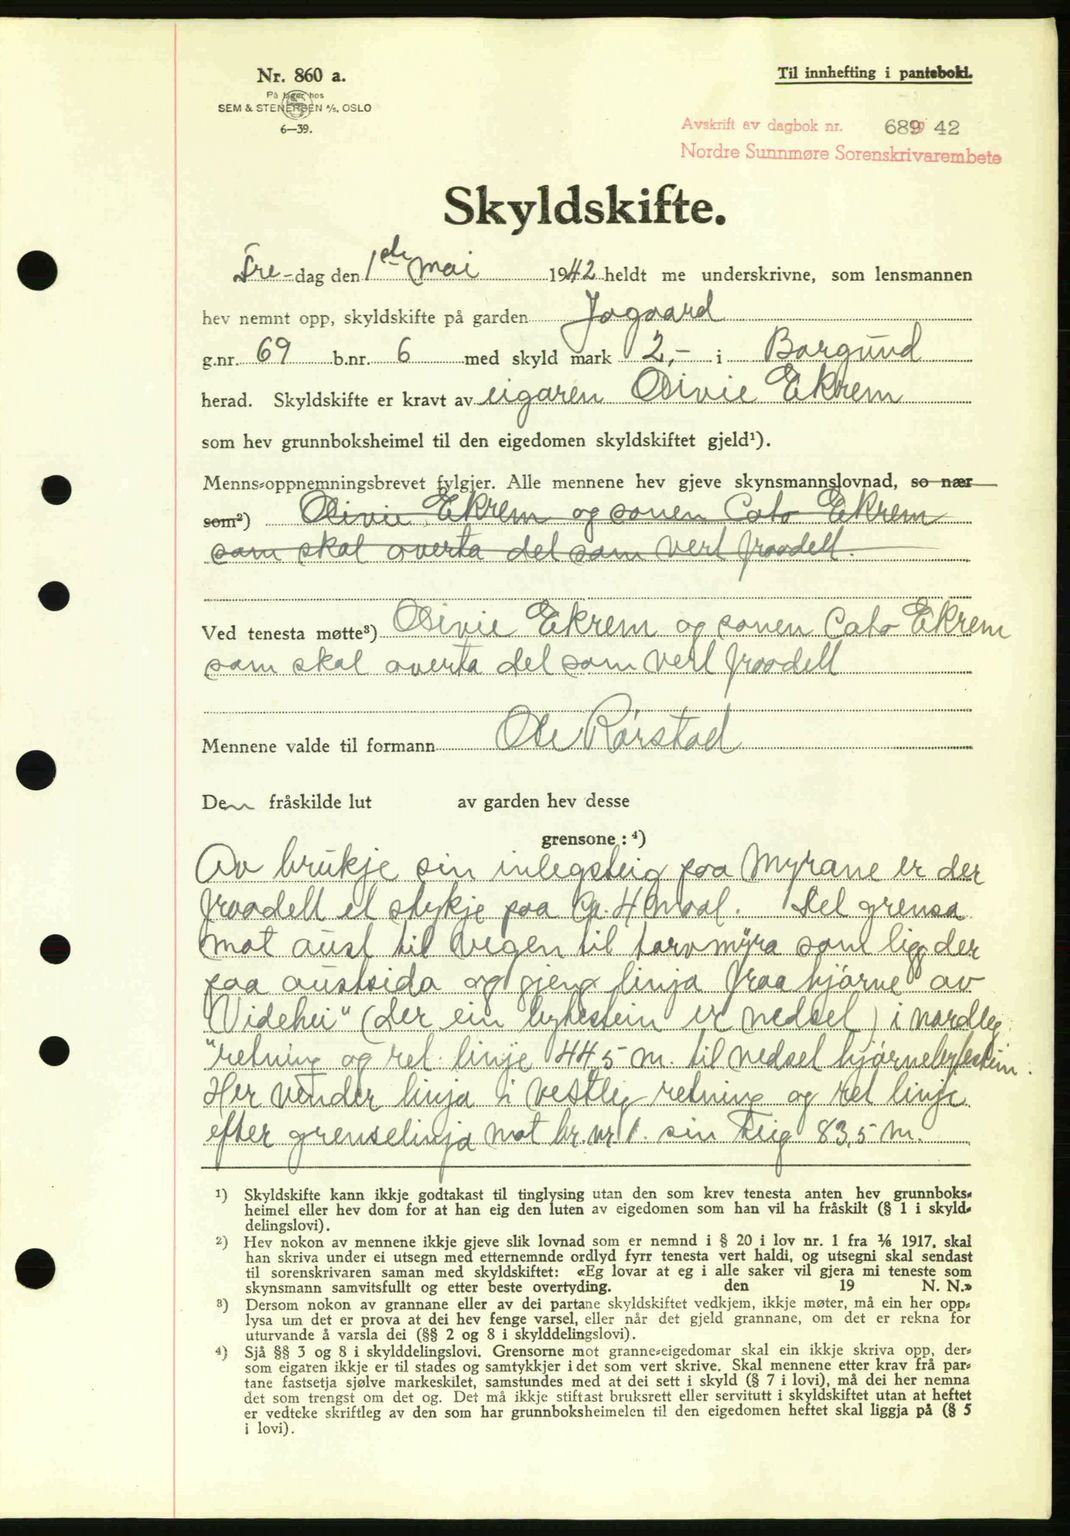 Nr. 860 a.
På lager hos
SEM & STENERSEN A/S, OSLO
6—39.
Til innhefting i pantebok.
Avskrift av dagbok nr. 689 42
Nordre Sunnmøre Sorenskrivarembete
Skyldskifte.
Fre-dag den 1ste mai 1942 heldt me underskrivne, som lensmannen
hev nemnt opp, skyldskifte på garden Jogaard
g.nr. 69 b.nr. 6 med skyld mark 2,- i Borgund
herad. Skyldskifte er kravt av eigaren Olivie Ekrem
som hev grunnboksheimel til den eigedomen skyldskiftet gjeld¹).
Menns-oppnemningsbrevet fylgjer. Alle mennene hev gjeve skynsmannslovnad, so nær
som²) Olivie Ekrem og sonen Cato Ekrem
som skal overta det som vert fraadelt.
Ved tenesta møtte³) Olivie Ekrem og sonen Cato Ekrem
som skal overta det som vert fraadelt
Mennene valde til formann Ole Rørstad
Den fråskilde lut av garden hev desse
grensone: ⁴)
Av brukje sin inlegsteig paa Myrane er der
fraadelt et stykje paa ca. 4 maal. Det grensa
mot aust til vegen til torvmyra som ligg der
paa austsida og gjeng linja fraa hjørne av
"Videhei" (der ein bytestein er nedset) i nordleg
retning og ret linje 44,5 m. til nedset hjørnebytestein.
Her vender linja i vestleg retning og ret linje
efter grenselinja mot br. nr 1. sin teig 83,5 m.
¹) Skyldskifte kann ikkje godtakast til tinglysing utan den som krev tenesta anten hev grunnboks-
heimel eller hev dom for at han eig den luten av eigedomen som han vil ha fråskilt (§ 1 i skyld-
delingslovi).
²) Hev nokon av mennene ikkje gjeve slik lovnad som er nemnd i § 20 i lov nr. 1 fra 1/6 1917, skal
han skriva under ei utsegn med etternemnde ordlyd fyrr tenesta vert haldi, og utsegni skal sendast
til sorenskrivaren saman med skyldskiftet: «Eg lovar at eg i alle saker vil gjera mi teneste som
skynsmann samvitsfullt og etter beste overtyding. den 19 N. N.»
³) Dersom nokon av grannane eller av dei partane skyldskiftet vedkjem, ikkje møter, må ein her opp-
lysa um det er prova at dei hev fenge varsel, eller når det gjeld grannane, om det er rekna for
uturvande å varsla dei (§§ 2 og 8 i skylddelingslovi).
⁴) Sjå §§ 3 og 8 i skylddelingslovi. Grensorne mot granne-eigedomar skal ein ikkje skriva opp, der-
som eigaren ikkje er til stades og samtykkjer i det som vert skrive. Skal mennene etter krav frå par-
tane fastsetja sjølve markeskilet, samstundes med at dei sett i skyld (§ 7 i lovi), må dei her nemna
det som trengst om det og. Det må ikkje stiftast bruksrett eller servitutt i skyldskiftet utan at heftet
er vedteke skriftleg av den som har grunnboksheimelen til den eigedomen heftet skal liggja på (§ 5
i lovi).